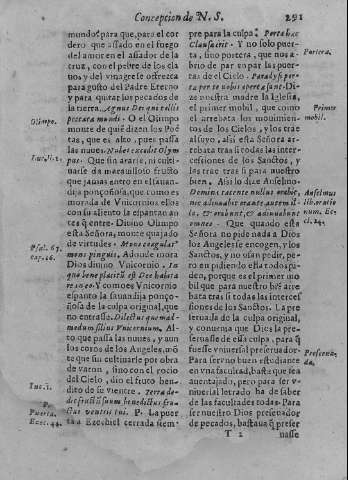 Concepcion de N. S. 291
mundo? para que, para el cor
dero que assado en el fuego
del amor en el assador de la
cruz, con el pebre de los cla
uos y del vinagre se ofrezca
para gusto del Padre Eterno
y para quitar los pecados de
la tierra. Agnus Dei qui tollis
peccata mundi. O el Olimpo
monte de quiē dizen los Poe
tas, que es alto, pues passa
las nuues. Nubes excedit Olym
pus. Que sin ararse, ni culti
uarse da marauilloso fruto
que jamas entro en el sauan-
dija ponçoñosa, que como es
morada de Vnicornios ellos
con su aliento la espantan an
tes q̄ entre. Diuino Olimpo
esta Señora, monte quajado
de virtudes. Mons coagulatus
mons pinguis. Adonde mora
Dios diuino Vnicornio. In
quo beneplacitū est Deo habita
re in eo. Y como es Vnicornio
espanto la sauandija ponço
ñosa de la culpa original, que
no entrasse. Dilectus quemad
modum filius Vnicornium. Al-
to que passa las nuues, y aun
los coros de los Angeles, mō
te que sin cultiuarse por obra
de varon, sino con el rocio
del Cielo, dio el fruto bendi
to de su vientre. Terra de-
dit fructū suum benedictus fru-
ctus ventris tui. P. La puer
ta a Ezechiel cerrada siem-
Olimpo.
Luc. 1.
Psal. 67.
cap. 16.
Luc. 1.
P.
Puerta.
Ezec. 44.
pre para la culpa. Porta hæc
Clausa erit. Y no solo puer-
ta, sino portera, que nos a-
brio de par en par las puer-
tas de el Cielo. Paradysi por-
ta per te nobis aperta sunt. Di-
ze nuestra madre la Iglesia,
el primer mobil, que como
el arrebata los mouimien-
tos de los Cielos, y los trae
al suyo, assi esta Señora ar-
rebata tras si todas las inter-
cessiones de los Sanctos, y
las trae tras si para nuestro
bien. Assi lo dize Anselmo.
Domina tacente nullus orabit,
nec adiuuabit orante autem il-
la, & orabunt, & adiuuabunt
omnes. Que quando esta
Señora no pide nada a Dios
los Angeles se encogen, y los
Sanctos, y no osan pedir, pe-
ro en pidiendo ella todos pi-
den, porque es el primer mo
bil que para nuestro biē arre
bata tras si todas las interces
siones de los Sanctos. La pre
seruada de la culpa original,
y conuenia que Dios la pre-
seruasse de esta culpa, para q̄
fuesse vniuersal preseruador.
Para ser vno buen estudiante
en vna facultad, basta que sea
auentajado, pero para ser v-
niuersal letrado ha de saber
de las facultades todas. Para
ser nuestro Dios preseruador
de pecados, bastaua q̄ preser
Portera.
Primer
mobil.
Anselmus
lib. oratio
num. Ec-
cl. 24.
Preseruada.
T 2 uasse